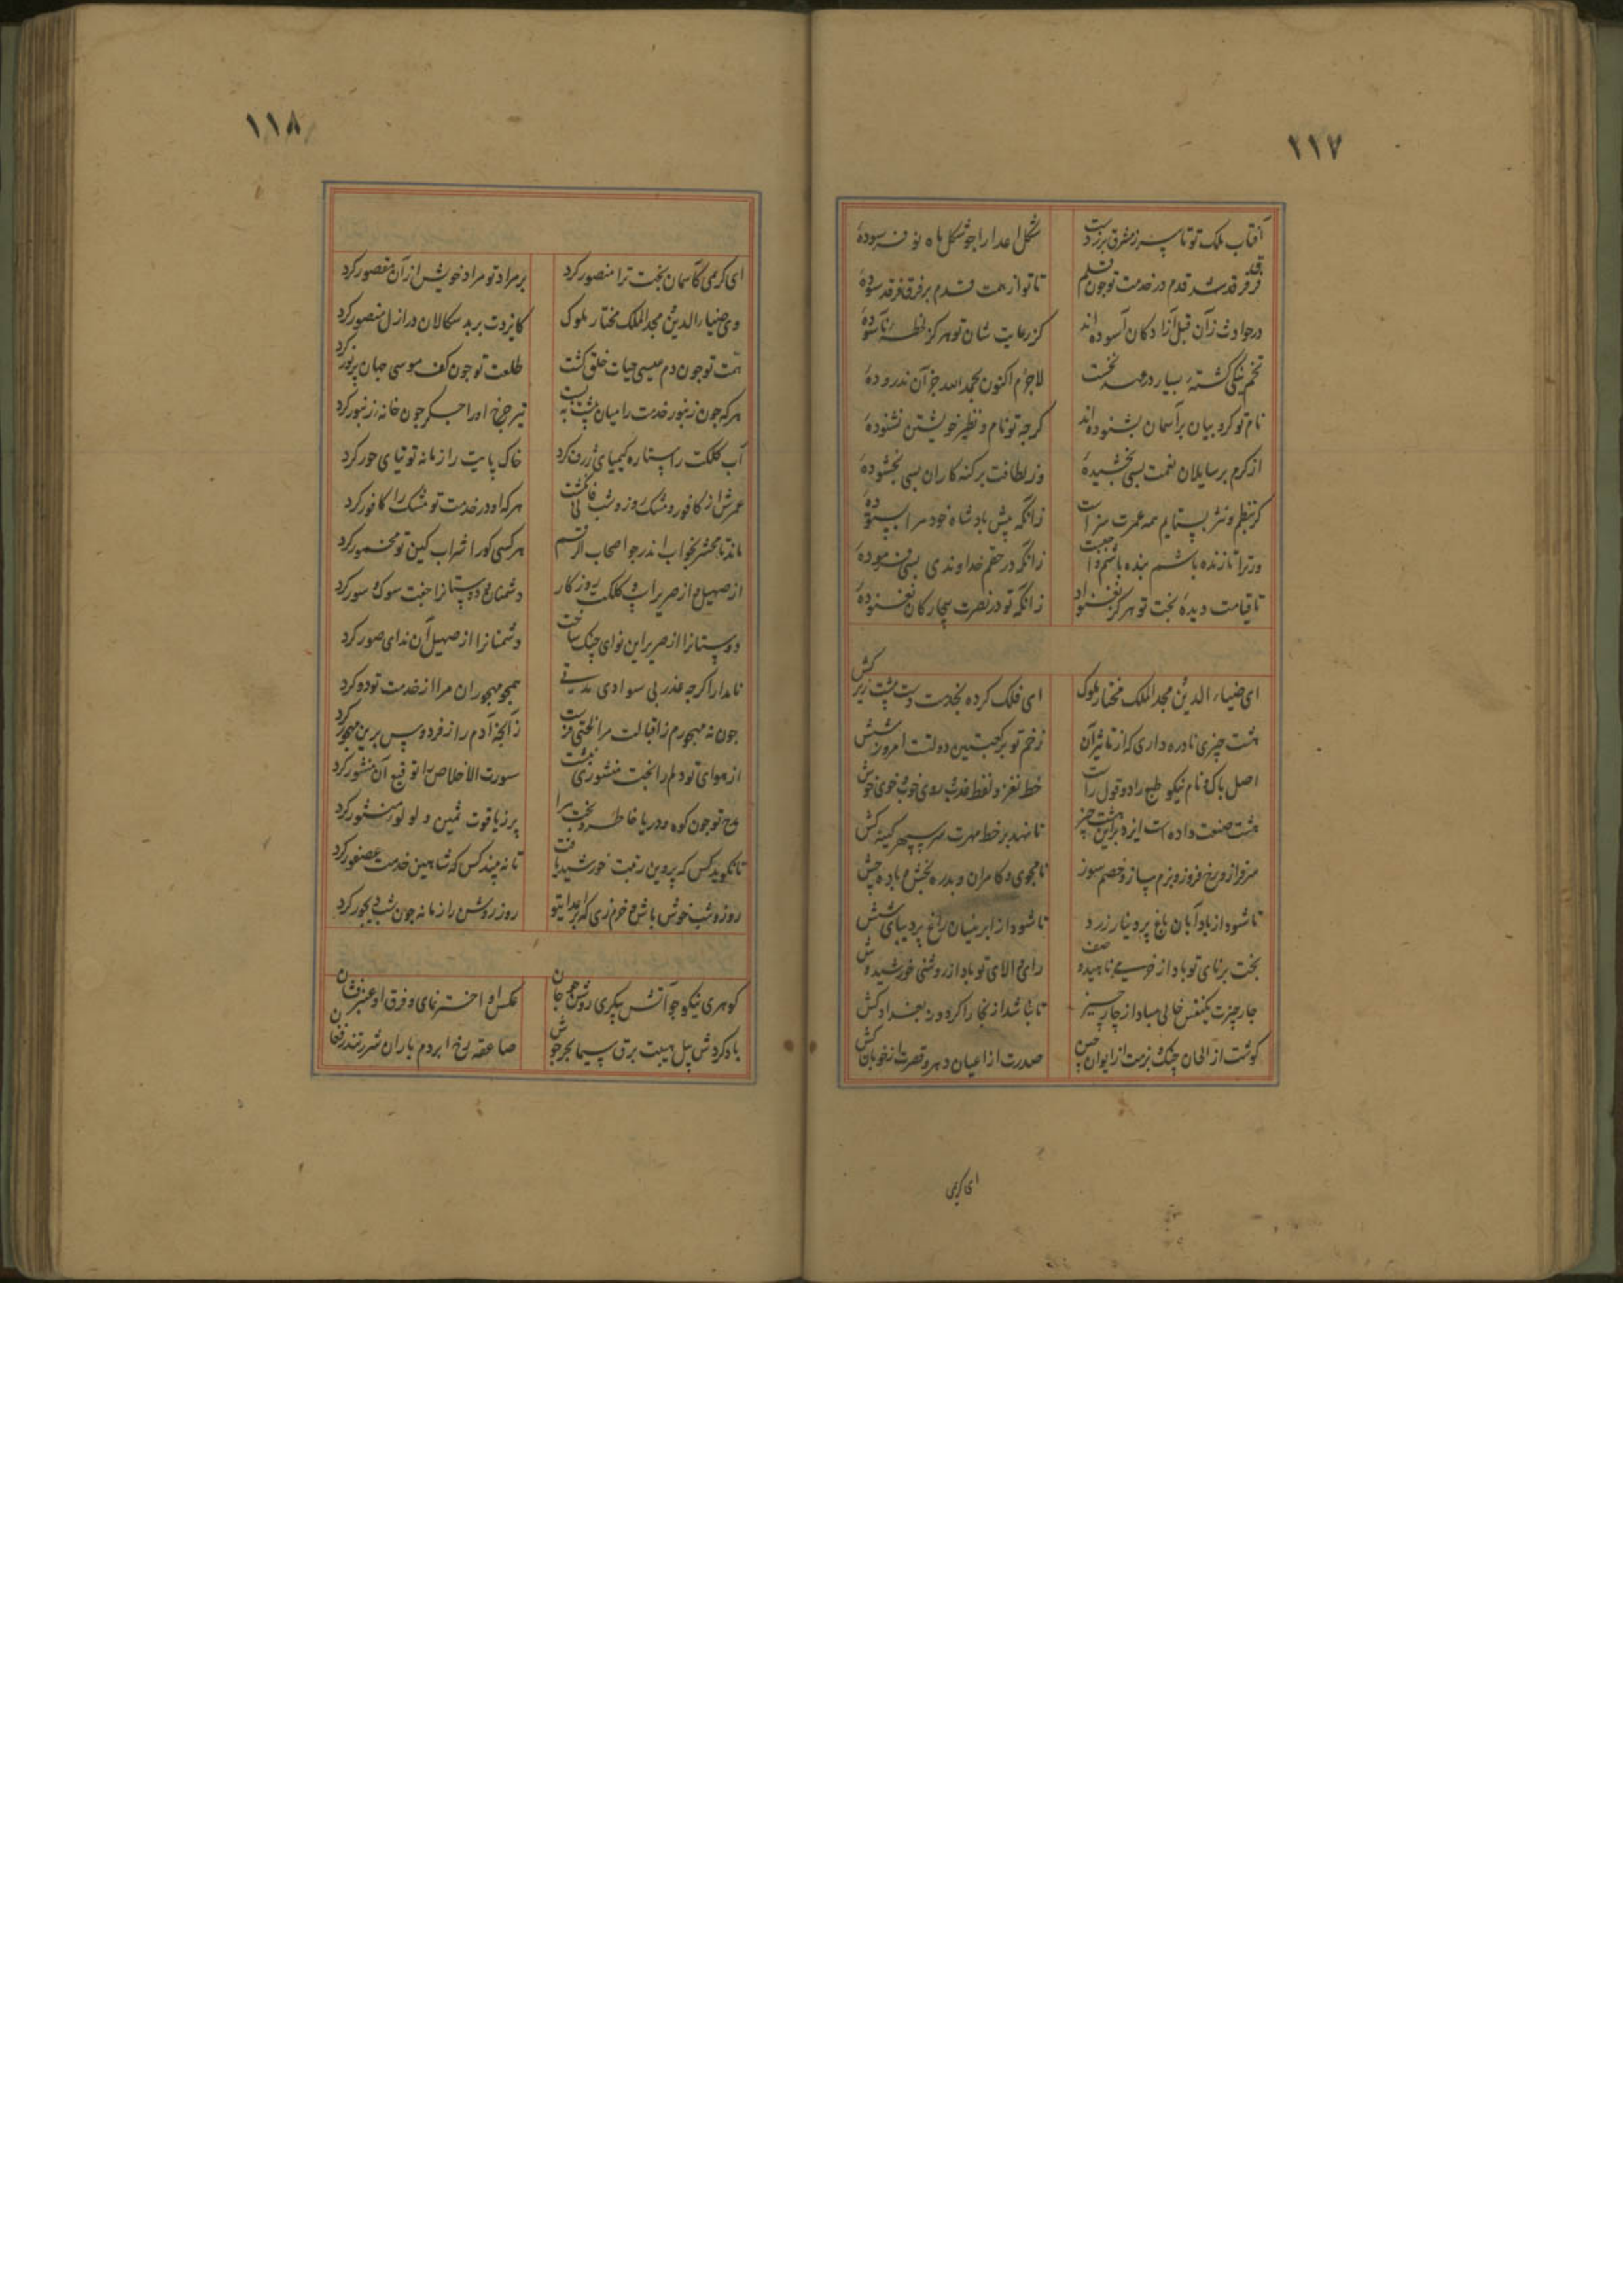 ١١٧
آفتاب ملک تو تا سر ز مشرق برزدست
شکل اعدا را جو شکل ماه نو فرسودهٔ
فرقد شد قدم در خدمت تو جون قلم
تا تو از همت قدم بر فرق فرقد سودهٔ
در حوادث زآن قبل آزادکان آسوده‌اند
کز رعایت شان تو هرکز لحظهٔ ناسودهٔ
تخم نیکی کشتهٔ بسیار در عهد نخست
لاجرم اکنون بحمدالله جز آن ندرودهٔ
نام تو کروبیان بر آسمان بشنوده‌اند
کرجه تو نام و نظیر خویشتن نشنودهٔ
از کرم بر سایلان نعمت بسی بخشیدهٔ
وز لطافت بر کنه کاران بسی بخشودهٔ
کر بنظم و نثر بستایم همه عمرت سزاست
زانکه پیش بادشاه خود مرا بستودهٔ
ور ترا تا زنده باشم بنده باشم واجبست
زانکه در حقم خداوندی بسی فرمودهٔ
تا قیامت دیدهٔ بخت تو هرکز نغنواد
زانکه تو در نصرت بیچارکان نغنودهٔ
ای ضیاء الدین مجد الملک مختار ملوک
ای فلک کرده بخدمت دست پشت زیر کش
هشت چیزی نادره داری که از تاثیر آن
زخم تو بر کعبتین دولت امروز شش
اصل باک و نام نیکو طبع راد و قول راست
خط نغز و لفظ عذب و روی خوب و خوی خوش
هشت صنعت داده است ایزد برین هشت چیز
تا نهد بر خط مهرت سر سپهر کینه کش
سرفراز و رخ فروز و بزم ساز و خصم سوز
نامجوی و کامران و بدره بخش و باده جش
تا شود از باد آبان باغ پر دینار زرد
تا شود از ابر نیسان راغ پر دیبای شش
بخت برنای تو باد از خرمی ناهید صف
رای والای تو باد از روشنی خورشید وش
جار چیزت یکنفس خالی مباد از جار چیز
تا نباشد از بخارا کره و ز بغداد کش
کوشت از الحان جنک و بزمت از ایوان حسن
صدرت از اعیان دهر و قصرت از خوبان کش
ای کریمی
١١٨
ای کریمی کآسمان بخت ترا منصور کرد
بر مراد تو مراد خویش از آن مقصور کرد
وی ضیاء الدین مجد الملک مختار ملوک
کایزدت بر بد سکالان در ازل منصور کرد
همت تو جون دم عیسی حیات خلق کشت
طلعت تو جون کف موسی جهان پر نور کرد
هرکه جون زنبور خدمت را میان پیشت ببست
تیر جرخ او را جکر جون خانهٔ زنبور کرد
آب کلکت را ستاره کیمیای زرف کرد
خاک پایت را زمانه توتیای حور کرد
عمرش از کافور و مشک روز و شب خالی نکشت
هرکه او در خدمت تو مشک را کافور کرد
ماند تا محشر بخواب اندر جو اصحاب الرقیم
هر کسی کو را شراب کین تو مخمور کرد
از صهیل و از صریر اسب و کلکت روزکار
دشمنان و دوستانرا جفت سوک و سور کرد
دوستانرا از صریر این نوای جنک ساخت
دشمنانرا از صهیل آن ندای صور کرد
نامدارا کرجه عذر بی سوادی مدتی
همجو مهجوران مرا از خدمت تو دور کرد
جون نه مهجورم ز اقبالت مرا لختی فزست
زآنجه آدم را ز فردوس برین مهجور کرد
از هوای تو دلم را بخت منشوری نبشت
سورت الاخلاص را توقیع آن منشور کرد
مدح تو جون کوه و دریا خاطر و بخت مرا
پر ز یاقوت ثمین و لولو منثور کرد
تا نکوید کس که پروین رتبت خورشید یافت
تا نه بیند کس که شاهین خدمت عصفور کرد
روز و شب خوش باش و خرم زی که بر اعدای تو
روز روشن را زمانه جون شب دیجور کرد
کوهری نیکو جو آتش پیکری روشن جو جان
عکس او اختر نمای و فرق او عنبر فشان
باد کردش پیل هیبت برق سیما بحر جوش
صاعقه رخ ابر دم باران شرر تندر فغان